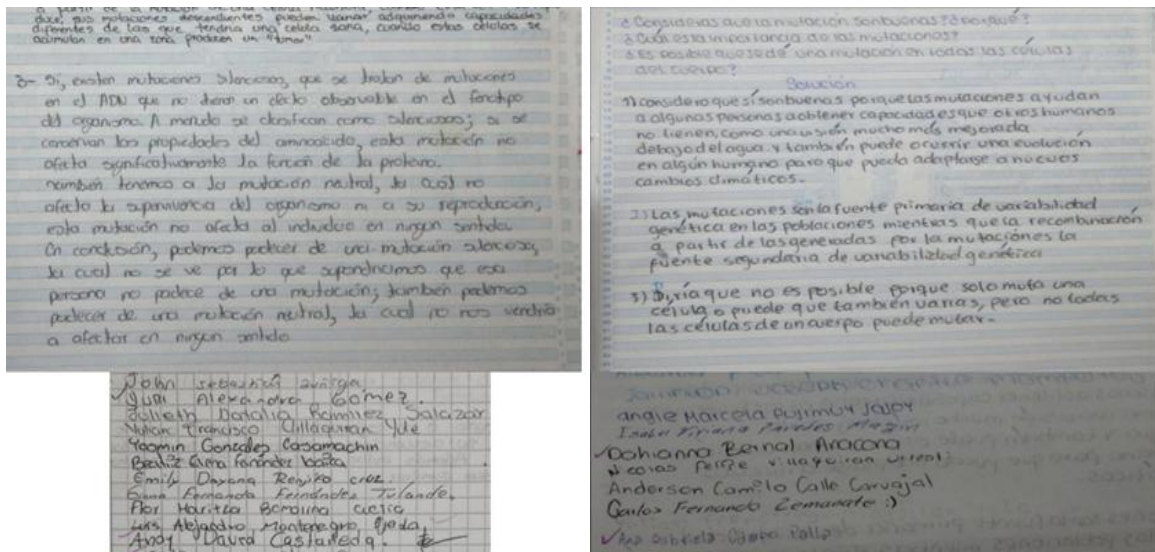 duce, sus motaciones descendientes pueden variar adquiriendo capacidades
diferentes de las que tendria una celula sana, cuando estas células se
acumulan en una zona producen un "tumor"
3- Si, existen mutaciones silenciosas, que se tratan de mutaciones
en el ADN que no tienen un efecto observable en el fenotipo
del organismo. A menudo se clasifican como silenciosas; si se
conservan las propiedades del aminoacido, esta mutación no
afecta significativamente la función de la proteina.
también tenemos a la mutación neutral, la cual no
afecta la supervivencia del organismo ni a su reproducción,
esta mutación no afecta al individuo en ningun sentido.
En conclusión, podemos padecer de una mutación silenciosa,
la cual no se ve por lo que supondriamos que esa
persona no padece de una mutación; tambien podemos
padecer de una mutación neutral, la cual no nos vendria
a afectar en ningun sentido
John sebastian
Yuri Alexandra Gómez.
Julieth Natalia Ramirez Salazar
Francisco Villaquiran Yule
Yasmin Gonzales Casamachin
Beatriz Elena Fernández
Emily Dayana Rengifo cruz.
Fernanda Fernández Tulande.
Flor Maritza
Luis Alejandro Montenegro Ojeda
Andy David Castañeda.
¿Consideras que la mutación son buenas? ¿porqué?
¿Cuál es la importancia de las mutaciones?
¿Es posible que se dé una mutación en todas las células
del cuerpo?
Solución
1) considero que sí son buenas porque las mutaciones ayudan
a algunas personas a obtener capacidades que otros humanos
no tienen, como una visión mucho más mejorada
debajo del agua y también puede ocurrir una evolución
en algún humano para que pueda adaptarse a nuevos
cambios climáticos.
2) Las mutaciones son la fuente primaria de variabilidad
genética en las poblaciones mientras que la recombinación
a partir de las generadas por la mutaciónes la
fuente segundaria de variabilidad genética
3) Diría que no es posible porque solo muta una
célula o puede que también varias, pero no todas
las células de un cuerpo puede mutar.
angie Marcela
Isabel Viviana Paredes
Dahianna Bernal Aracona
Nicolas Felipe Villaquiran
Anderson Camilo Calle Carvajal
Carlos Fernando Cemanate :)
Ana Gabriela